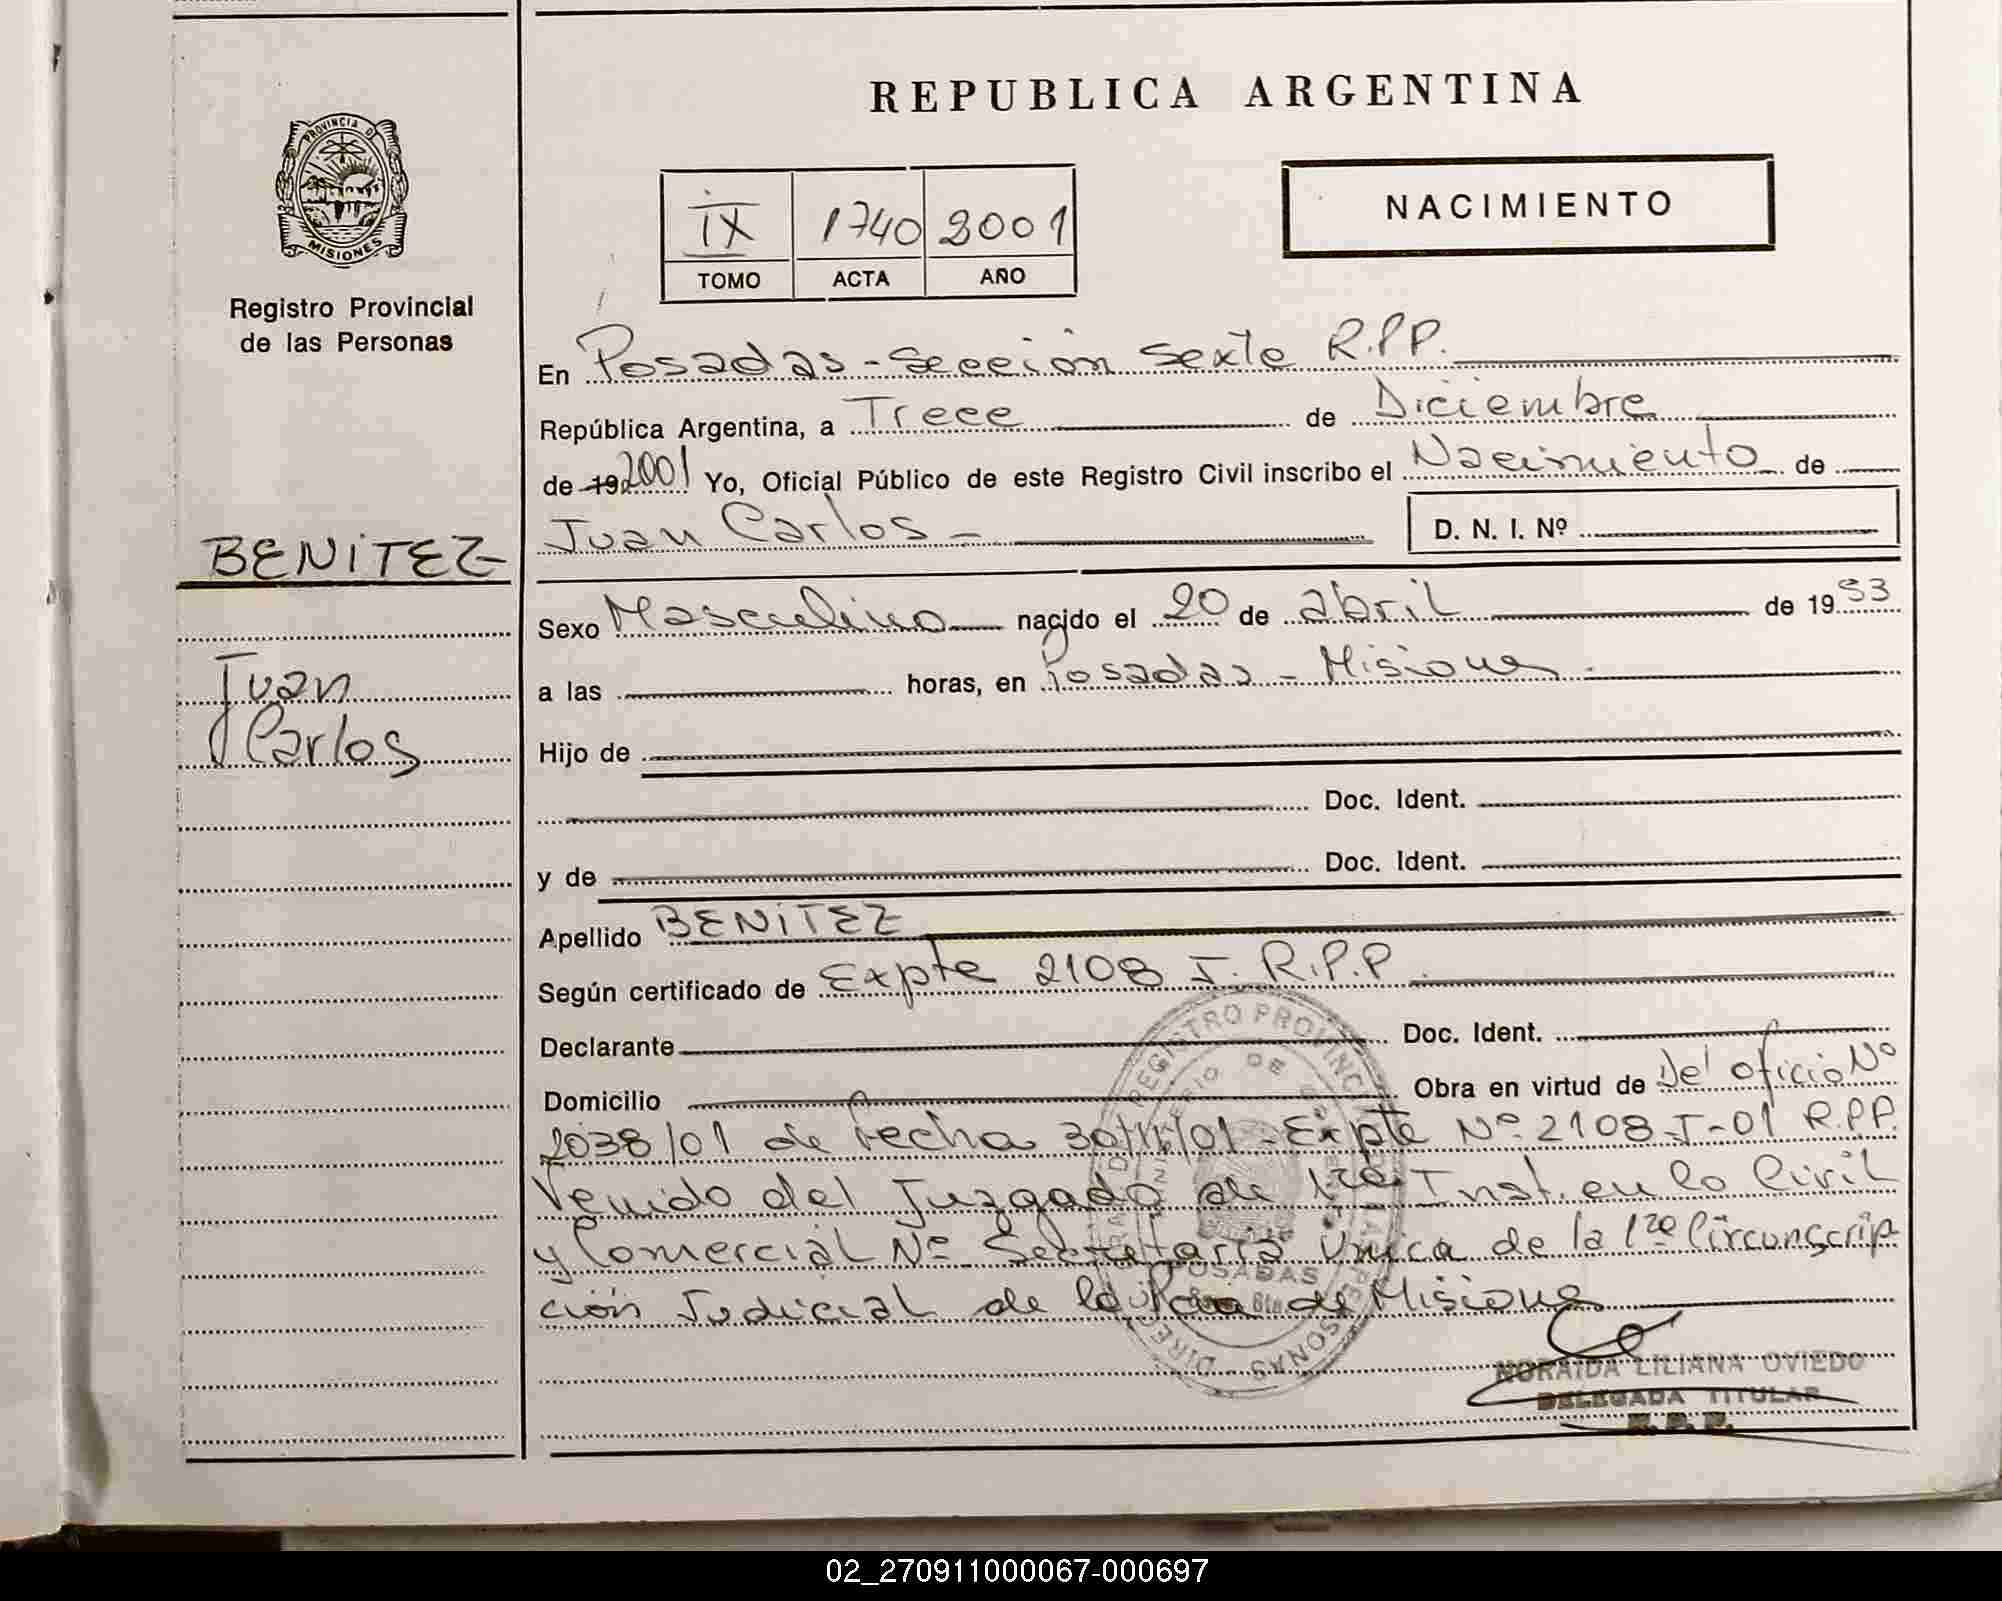 REPUBLICA ARGENTINA
PROVINCIA D
MISIONES
Registro Provincial
de las Personas
IX 1740 2001
TOMO ACTA AÑO
NACIMIENTO
En Posadas - Sección Sexta R.P.P.
República Argentina, a Trece de Diciembre
de 19 2001 Yo, Oficial Público de este Registro Civil inscribo el Nacimiento de
Juan Carlos - D. N. I. Nº
BENITEZ
Juan
Carlos
Sexo Masculino nacido el 20 de abril de 19
a las horas, en Posadas - Misiones -
Hijo de
Doc. Ident.
y de Doc. Ident.
Apellido BENITEZ
Según certificado de Expte 2108 J. R.P.P.
Declarante Doc. Ident.
Domicilio Obra en virtud de Del oficio Nº
2038/01 de fecha 30/11/01 - Expte Nº 2108-J-01 R.P.P.
Venido del Juzgado de 1ra Inst. en lo Civil
y Comercial Nº Secretaría Unica de la 1ra Circunscrip
ción Judicial de la Pcia de Misiones
REGISTRO PROVINC
POSADAS
NORAIDA LILIANA OVIEDO
DELEGADA TITULAR
02_270911000067-000697